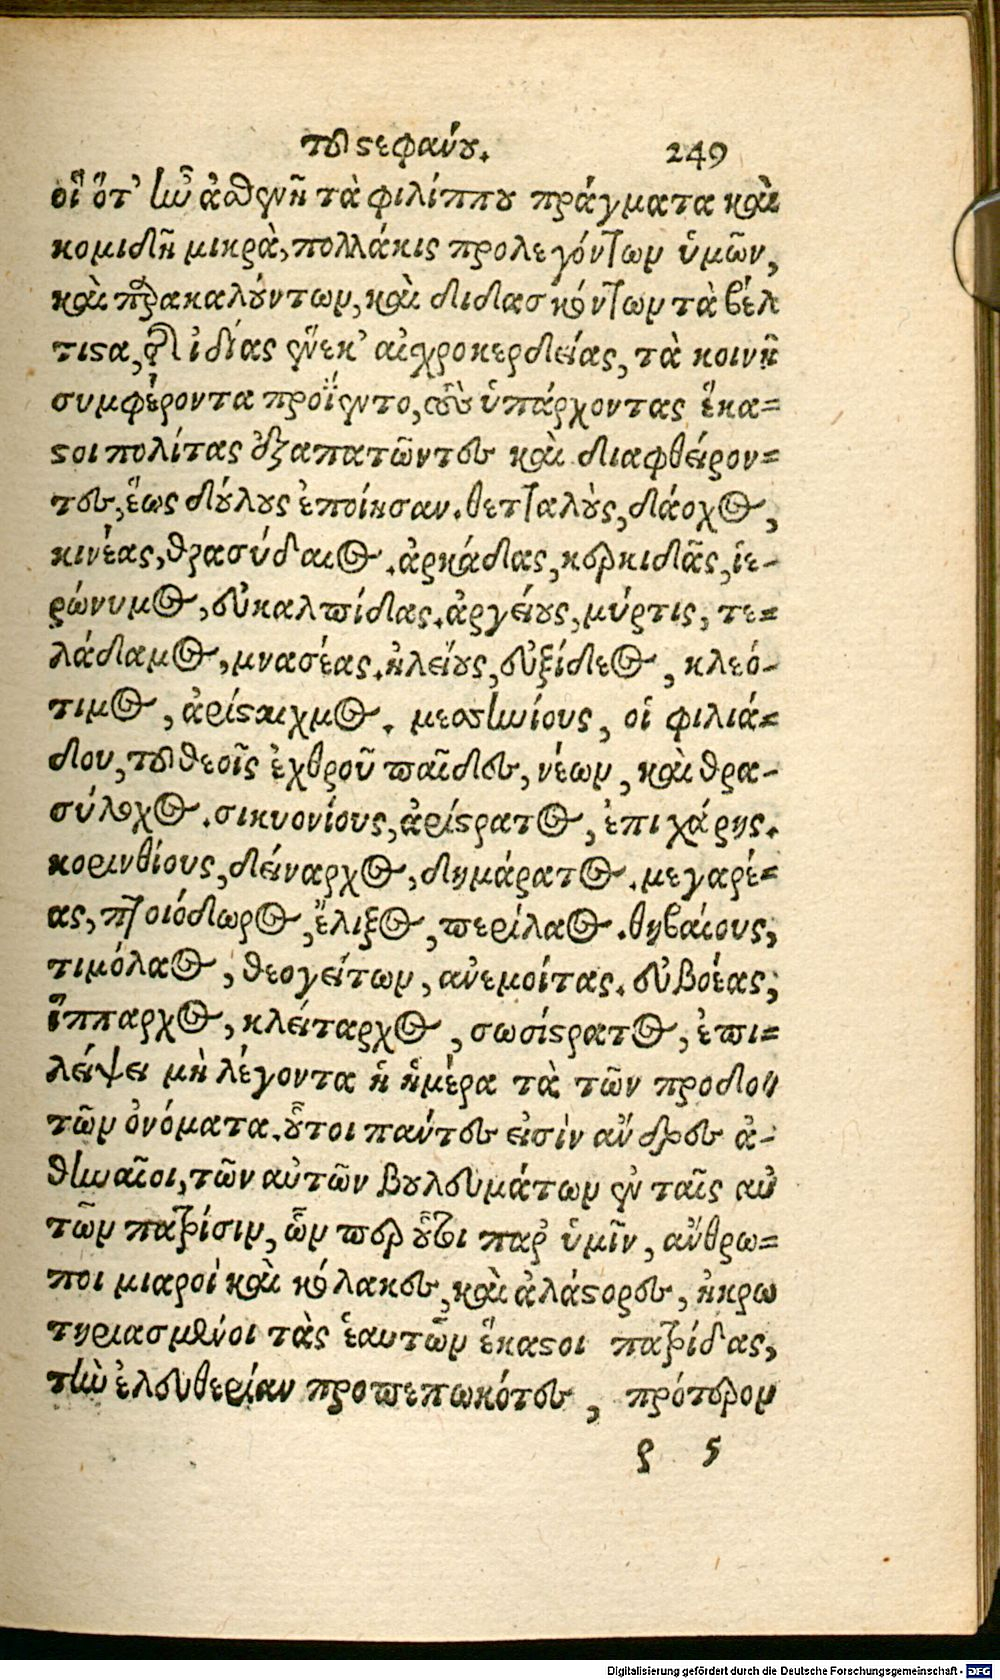 τοῦ στεφάνου. 249
οἳ ὅτ' ἦν ἀσθενῆ τὰ φιλίππου πράγματα καὶ
κομιδῆ μικρὰ, πολλάκις προλεγόντων ὑμῶν,
καὶ παρακαλούντων, καὶ διδασκόντων τὰ βέλ
τιστα, τῆς ἰδίας ἕνεκ' αἰσχροκερδείας, τὰ κοινῇ
συμφέροντα προΐεντο, τοὺς ὑπάρχοντας ἕκα=
στοι πολίτας ἐξαπατῶντες καὶ διαφθείρον=
τες, ἕως δούλους ἐποίησαν. θετταλοὺς, δάοχος,
κινέας, θρασύδαιος. ἀρκάδας, κερκιδᾶς, ἱε-
ρώνυμος, εὐκαλπίδας. ἀργείους, μύρτις, τε=
λάδαμος, μνασέας. ἠλείους, εὐξίθεος, κλεό-
τιμος, ἀρίσταιχμος. μεσσηνίους, οἱ φιλιά=
δου, τοῦ θεοῖς ἐχθροῦ παῖδες, νέων, καὶ θρα-
σύλοχος. σικυονίους, ἀρίστρατος, ἐπιχάρης.
κορινθίους, δείναρχος, δημάρατος. μεγαρέ=
ας, πτοιόδωρος, ἕλιξος, περίλαος. θηβαίους,
τιμόλαος, θεογείτων, ἀνεμοίτας. εὐβοέας,
ἵππαρχος, κλείταρχος, σωσίστρατος, ἐπι=
λείψει μὴ λέγοντα ἡ ἡμέρα τὰ τῶν προδο
τῶν ὀνόματα. οὗτοι πάντες εἰσὶν ἄνδρες ἀ-
θηναῖοι, τῶν αὐτῶν βουλευμάτων ἐν ταῖς αὑ
τῶν πατρίσιν, ὧν περ οὗτοι παρ' ὑμῖν, ἄνθρω=
ποι μιαροὶ καὶ κόλακες, καὶ ἀλάστορες, ἠκρω
τηριασμένοι τὰς ἑαυτῶν ἕκαστοι πατρίδας,
τὴν ἐλευθερίαν προπεπωκότες, πρότερον
ς 5
Digitalisierung gefördert durch die Deutsche Forschungsgemeinschaft - DFG